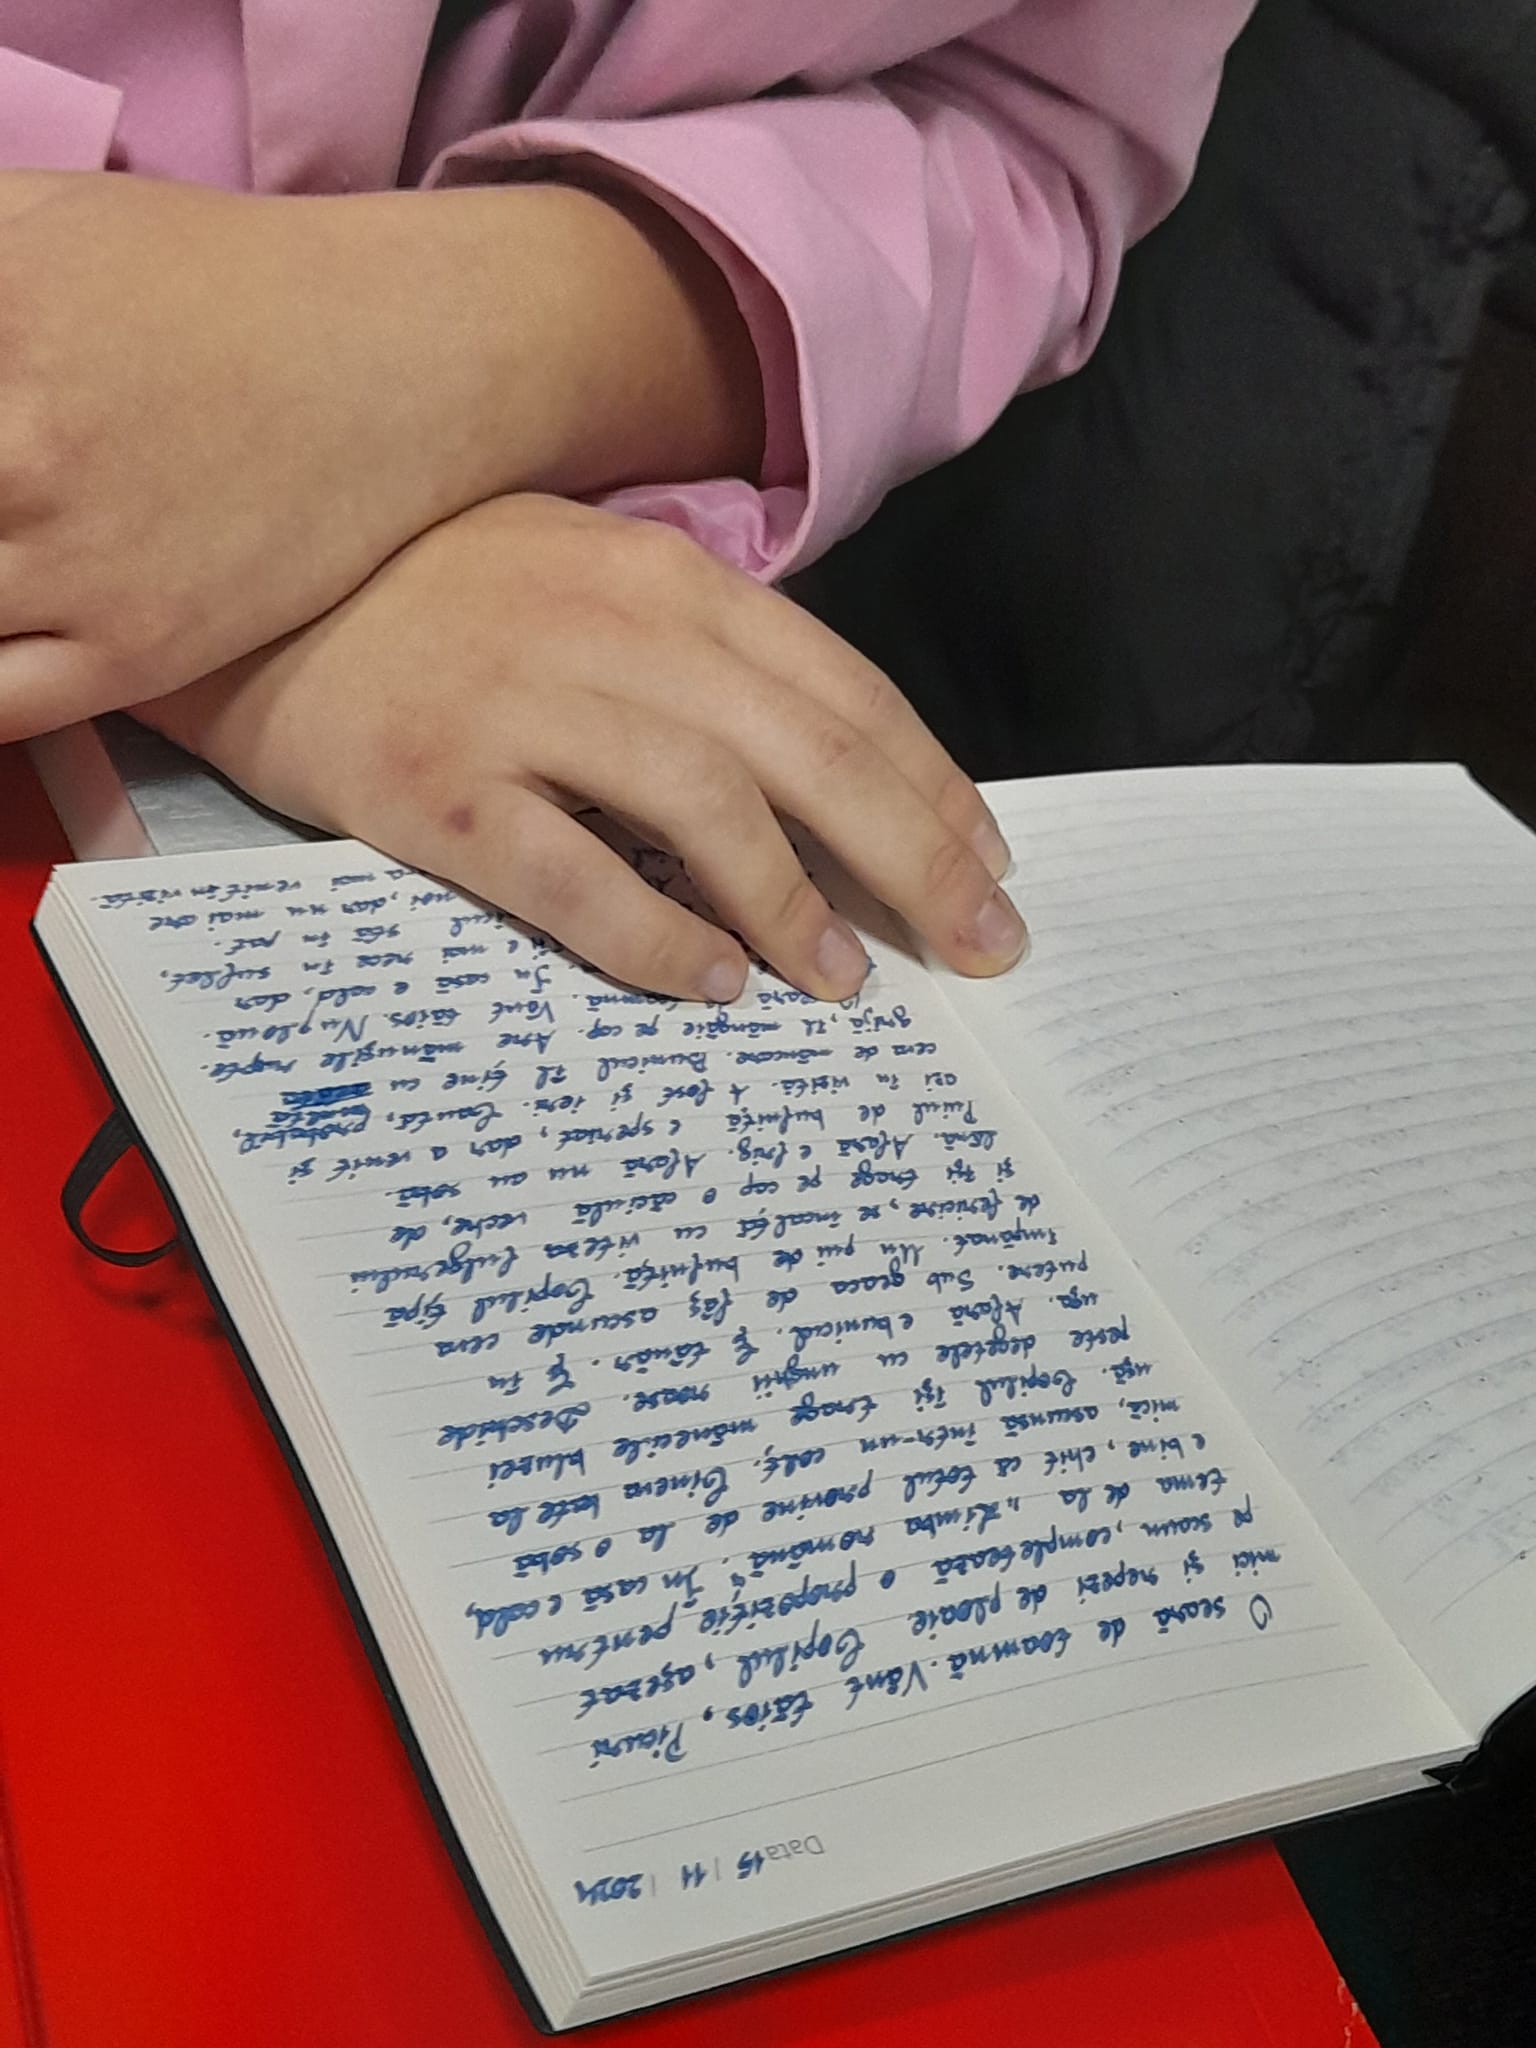 Data 15 | 11 | 2024
O seară de toamnă. Vânt tăios, Picuri
mici și repezi de ploaie. Copilul, așezat
pe scaun, completează o propoziție pentru
tema de la „Limba română". În casă e cald,
e bine, chit că totul provine de la o sobă
mică, ascunsă într-un colț. Cineva bate la
ușă. Copilul își trage mânecile bluzei
peste degetele cu unghii roase. Deschide
ușa. Afară e bunicul. E tânăr. E în
putere. Sub geaca de fâș ascunde ceva
împănat. Un pui de bufniță. Copilul țipă
de fericire, se încalță cu viteza fulgerului
și își trage pe cap o căciulă veche, de
lână. Afară e frig. Afară nu au sobă.
Puiul de bufniță e speriat, dar a venit și
azi în vizită. A fost și ieri. Caută, probabil,
ceva de mâncare. Bunicul îl ține cu
grijă, îl mângâie pe cap. Are mănușile rupte.
seară de toamnă. Vânt tăios. Nu plouă.
În casă e cald, dar
e mai rece în suflet.
stă în pat.
noi, dar nu mai are
mai venit în vizită.